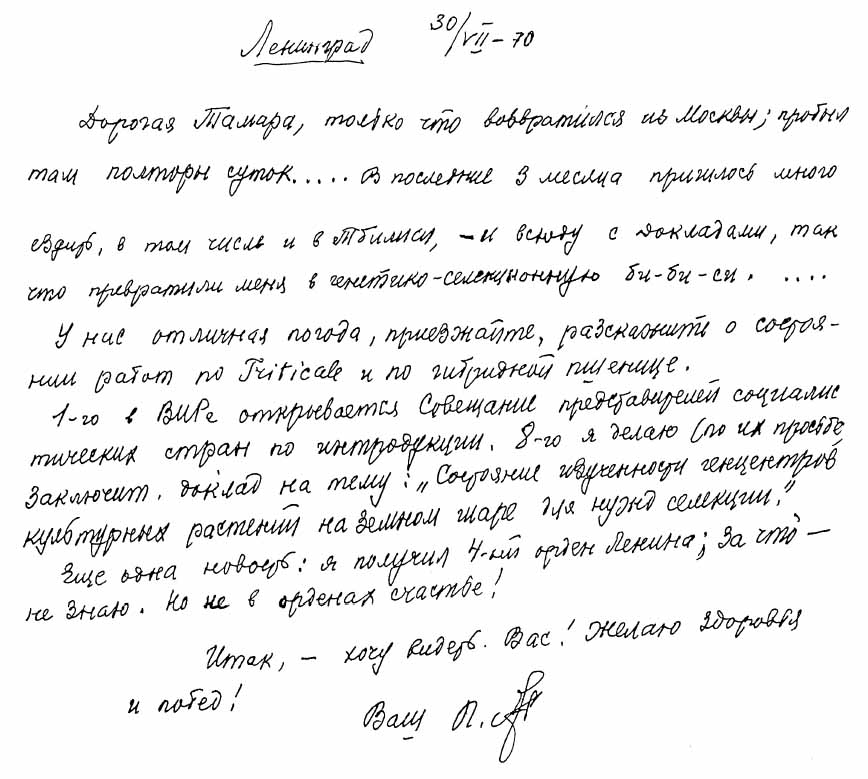 Ленинград 30/VII-70
Дорогая Тамара, только что возвратился из Москвы; пробыл
там полторы суток..... В последние 3 месяца пришлось много
ездить, в том числе и в Тбилиси, – и всюду с докладами, так
что превратили меня в генетико-селекционную би-би-си. ....
У нас отличная погода, приезжайте, разскажите о состоя-
нии работ по Triticale и по гибридной пшенице.
1-го в ВИРе открывается Совещание представителей социалис
тических стран по интродукции. 8-го я делаю (по их просьбе
заключит. доклад на тему: „Состояние изученности генцентров
культурных растений на Земном шаре для нужд селекции."
Еще одна новость: я получил 4-ый орден Ленина; За что –
не знаю. Но не в орденах счастье!
Итак, – хочу видеть Вас! Желаю здоровья
и побед!
Ваш П.